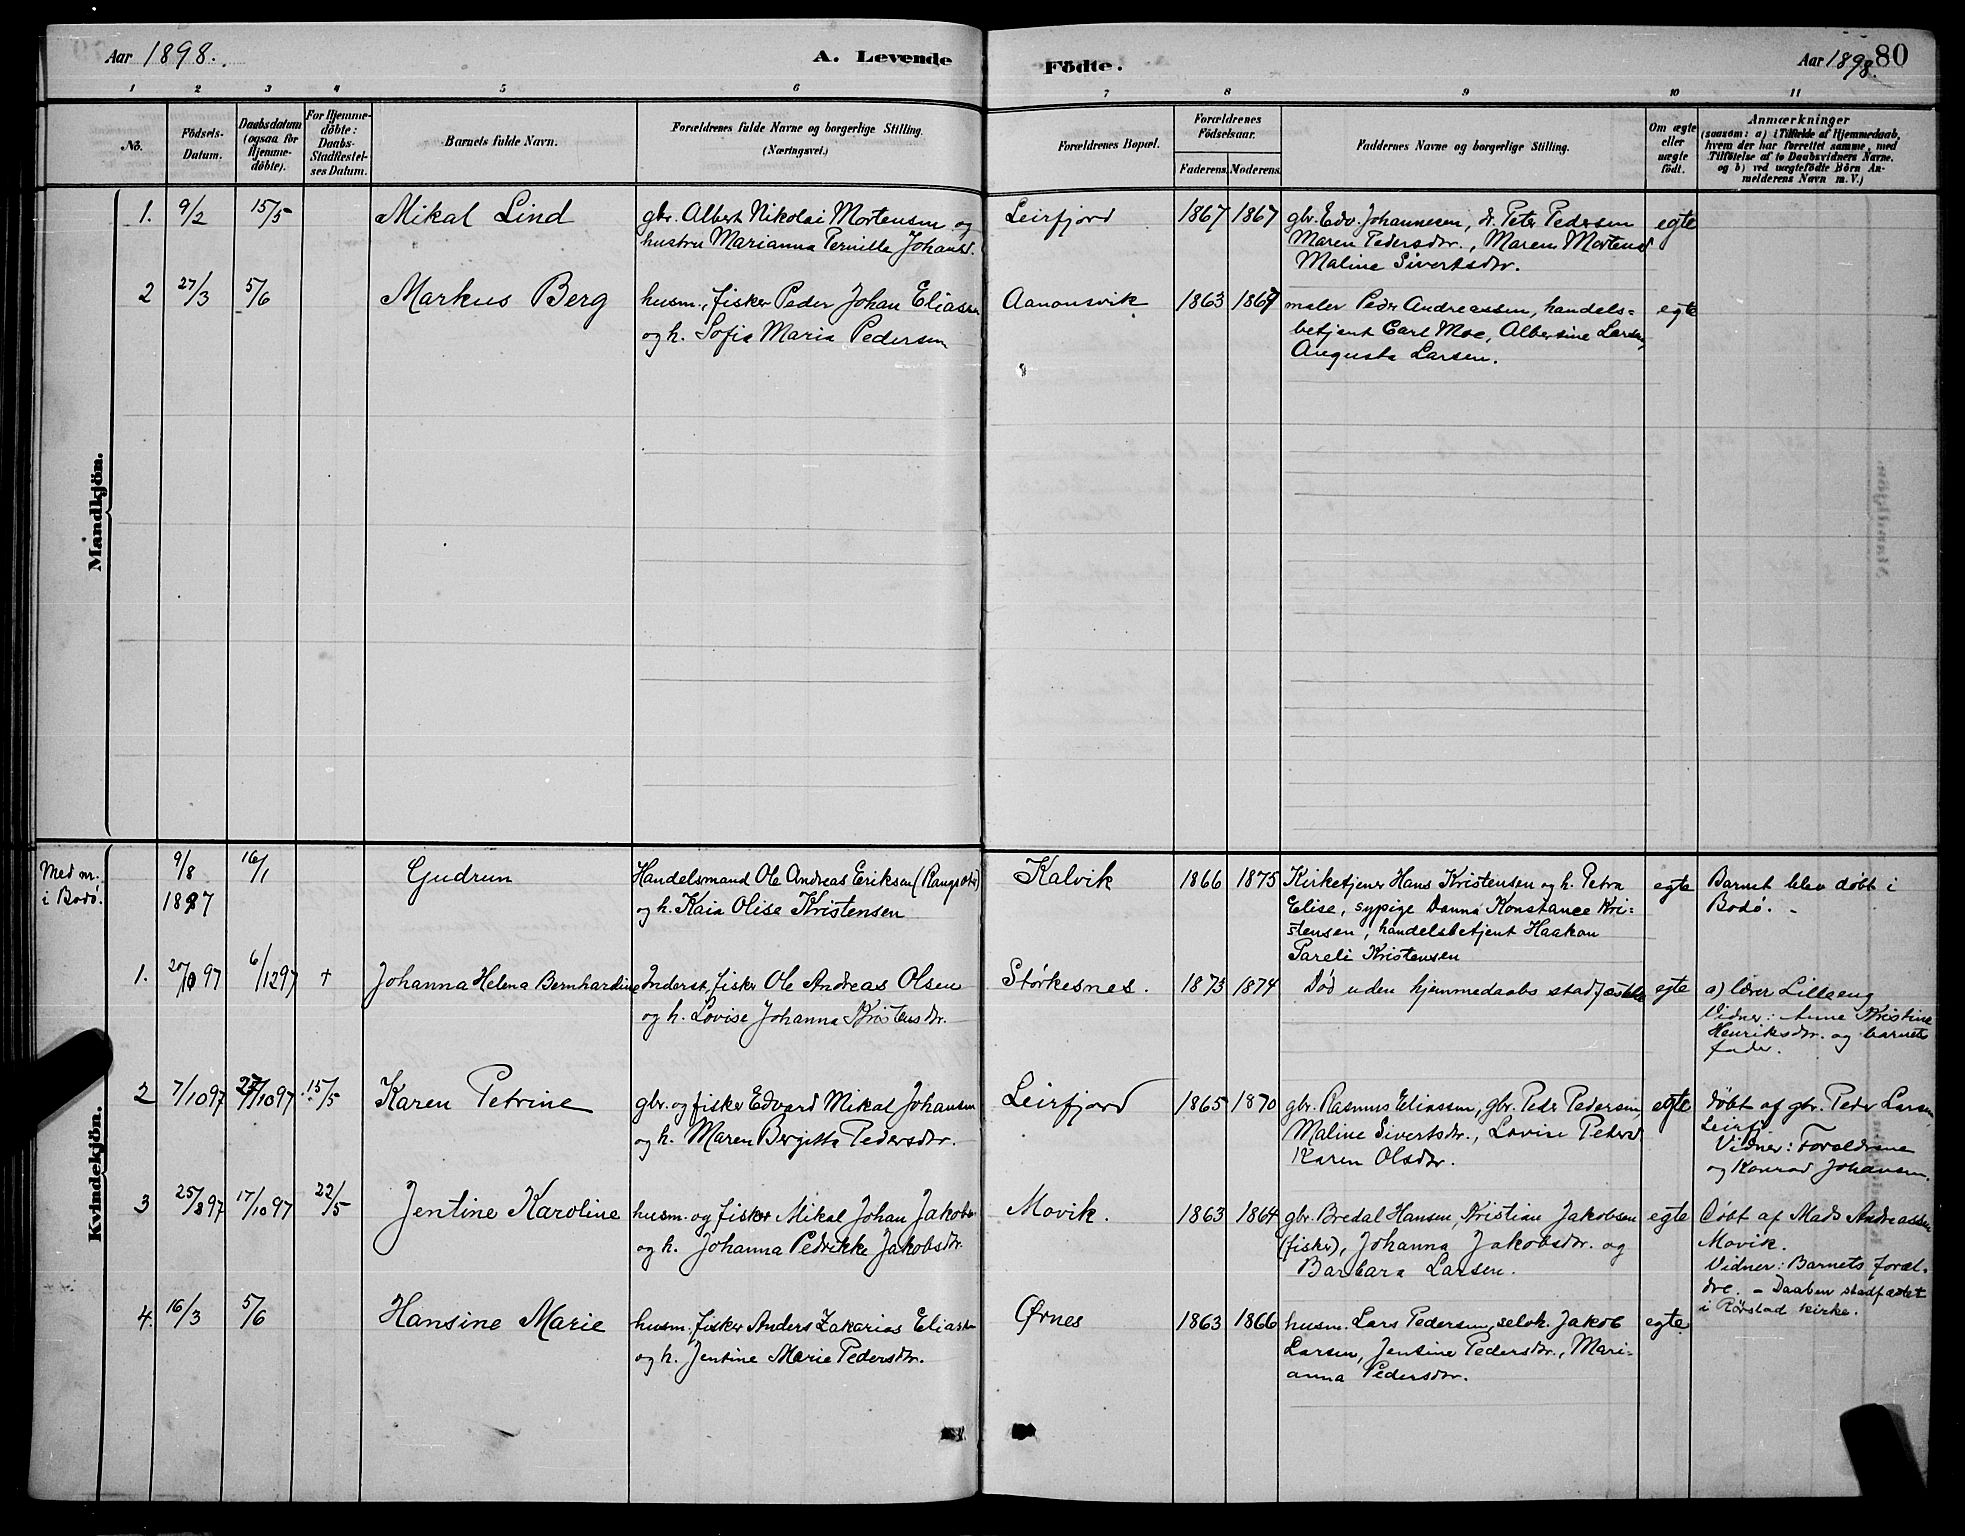 Aar 1898. A. Levende
Födte. Aar 1898. 80
1 2 3 4 5 6 7 8 9 10 11
No.
Födsels-
Datum.
Daabsdatum
(ogsaa for
Hjemme-
döbte).
For Hjemme-
döbte:
Daabs-
Stadfæstel-
ses Datum.
Barnets fulde Navn.
Forældrenes fulde Navne og borgerlige Stilling.
(Næringsvei.)
Forældrenes Bopæl.
Forældrenes
Födselsaar.
Faderens. Moderens.
Faddernes Navne og borgerlige Stilling.
Om ægte
eller
uægte
födt.
Anmærkninger
(saasom: a) i Tilfælde af Hjemmedaab,
hvem der har forrettet samme, med
Tilföielse af to Daabsvidners Navne.
og b) ved uægtefödte Börn An-
melderens Navn m. V.)
Mandkjön.
1. 9/2 15/5 Mikal Lind
gbr. Albert Nikolai Mortensen og
hustru Marianna Pernilla Johansd.
Leirfjord 1867 1867
gbr. Edv. Johannesen, dr. Peter Pedersen
Maren Pedersdr., Maren Mortensd
Maline Sivertsdr.
egte
2 27/3 5/6 Markus Berg
husm., fisker Peder Johan Eliassen
og h. Sofia Maria Pedersen
Aanonsvik 1863 1867
maler Peder Andreassen, handels=
betjent Carl Moe, Albertine Larsen,
Augusta Larsen.
egte
Kvindekjön.
Med nr.
i Bodö.
9/8
1897
16/1 Gudrun
Handelsmand Ole Andreas Eriksen
og h. Kaia Olise Kristensen
Kalvik 1866 1875
Kirketjener Hans Kristensen og h. Petra
Elise, sypige Danna Konstance Kri=
stensen, handelsbetjent Haakon
Pareli Kristensen
egte
Barnet blev döbt i
Bodö. -
1. 97 6/1297 + Johanna Helena Bernhardine
Inderst, fisker Ole Andreas Olsen
og h. Lovise Johanna Kristensdr.
Störkesnes. 1873 1874
Död uden hjemmedaabs stadfæstelse
egte
a) lærer Lilleeng
Vidner: Anne Kristine
Henriksdr. og barnets
fader.
2 7/1097 27/1097 15/5 Karen Petrine
gbr. og fisker Edvard Mikal Johansen
og h. Maren Bergitta Pedersdr.
Leirfjord 1865 1870
gbr. Rasmus Eliassen, gbr. Peder Pedersen
Maline Sivertsdr., Lovise Pedersd
Karen Olsdr.
egte
döbt af gbr. Peder Larsen
Leirfj.
Vidner: Forældrene
og Konrad Johansen.
3 25/897 17/1097 22/5 Jentine Karoline
husm. og fisker Mikal Johan Jakobs
og h. Johanna Pedrikke Jakobsdr.
Movik. 1863 1864
gbr. Bredal Hansen, Kristian Jakobsen
(fisker), Johanna Jakobsdr. og
Barbara Larsen.
egte
Döbt af Mads Andreassen
Movik.
Vidner: Barnets foræl-
dre. - Daaben stadfæstet
i Rörstad kirke.
4. 16/3 5/6 Hansine Marie
husm. fisker Anders Zakarias Eliassen
og h. Jentine Marie Pedersdr.
Ørnes 1863 1866
husm. Lars Pedersen, selvk. Jakob
Larsen, Jentine Pedersdr., Mari=
anna Pedersdr.
egte